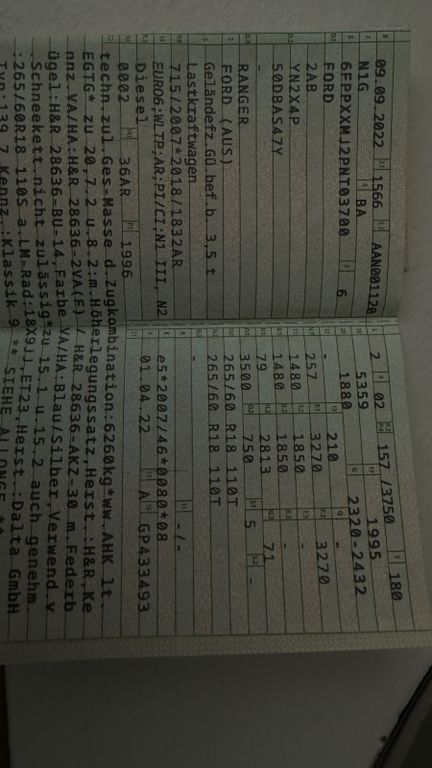 09.09.2022 1566 AAN001120
N1G BA
6FPPXXMJ2PNT03700 6
FORD
2AB
YN2X4P
50DBAS47Y
-
RANGER
FORD (AUS)
Geländefz.Gü.bef.b. 3,5 t
Lastkraftwagen
715/2007*2018/1832AR
EURO6;WLTP;AR;PI/CI;N1 III, N2
Diesel
0002 36AR 1996
2 02 157 /3750 180
5359 1995
1880 2320-2432
- 210 -
257 3270 3270
1480 1850 -
1480 1850 -
79 2813 71
3500 750 5 -
265/60 R18 110T
265/60 R18 110T
-
-/-
e5*2007/46*0080*08
01.04.22 A GP433493
techn.zul.Ges-Masse d.Zugkombination:6260kg*ww.AHK lt.
EGTG* zu 20,7.2 u.8.2:m.Höherlegungssatz,Herst.:H&R,Ke
nnz.VA/HA:H&R 28636-2VA(F) / H&R 28636-AKZ-30 m.Federb
ügel:H&R 28636-BU-14,Farbe VA/HA:Blau/Silber.Verwend.v
.Schneekett.nicht zulässig*zu 15.1 u.15.2 auch genehm
.:265/60R18 110S a.LM-Rad:18X9JJ,ET23,Herst.:Dalta GmbH
Typ:139.7 Kennz.:Klassik 9 ** SIEHE ALLONGE **